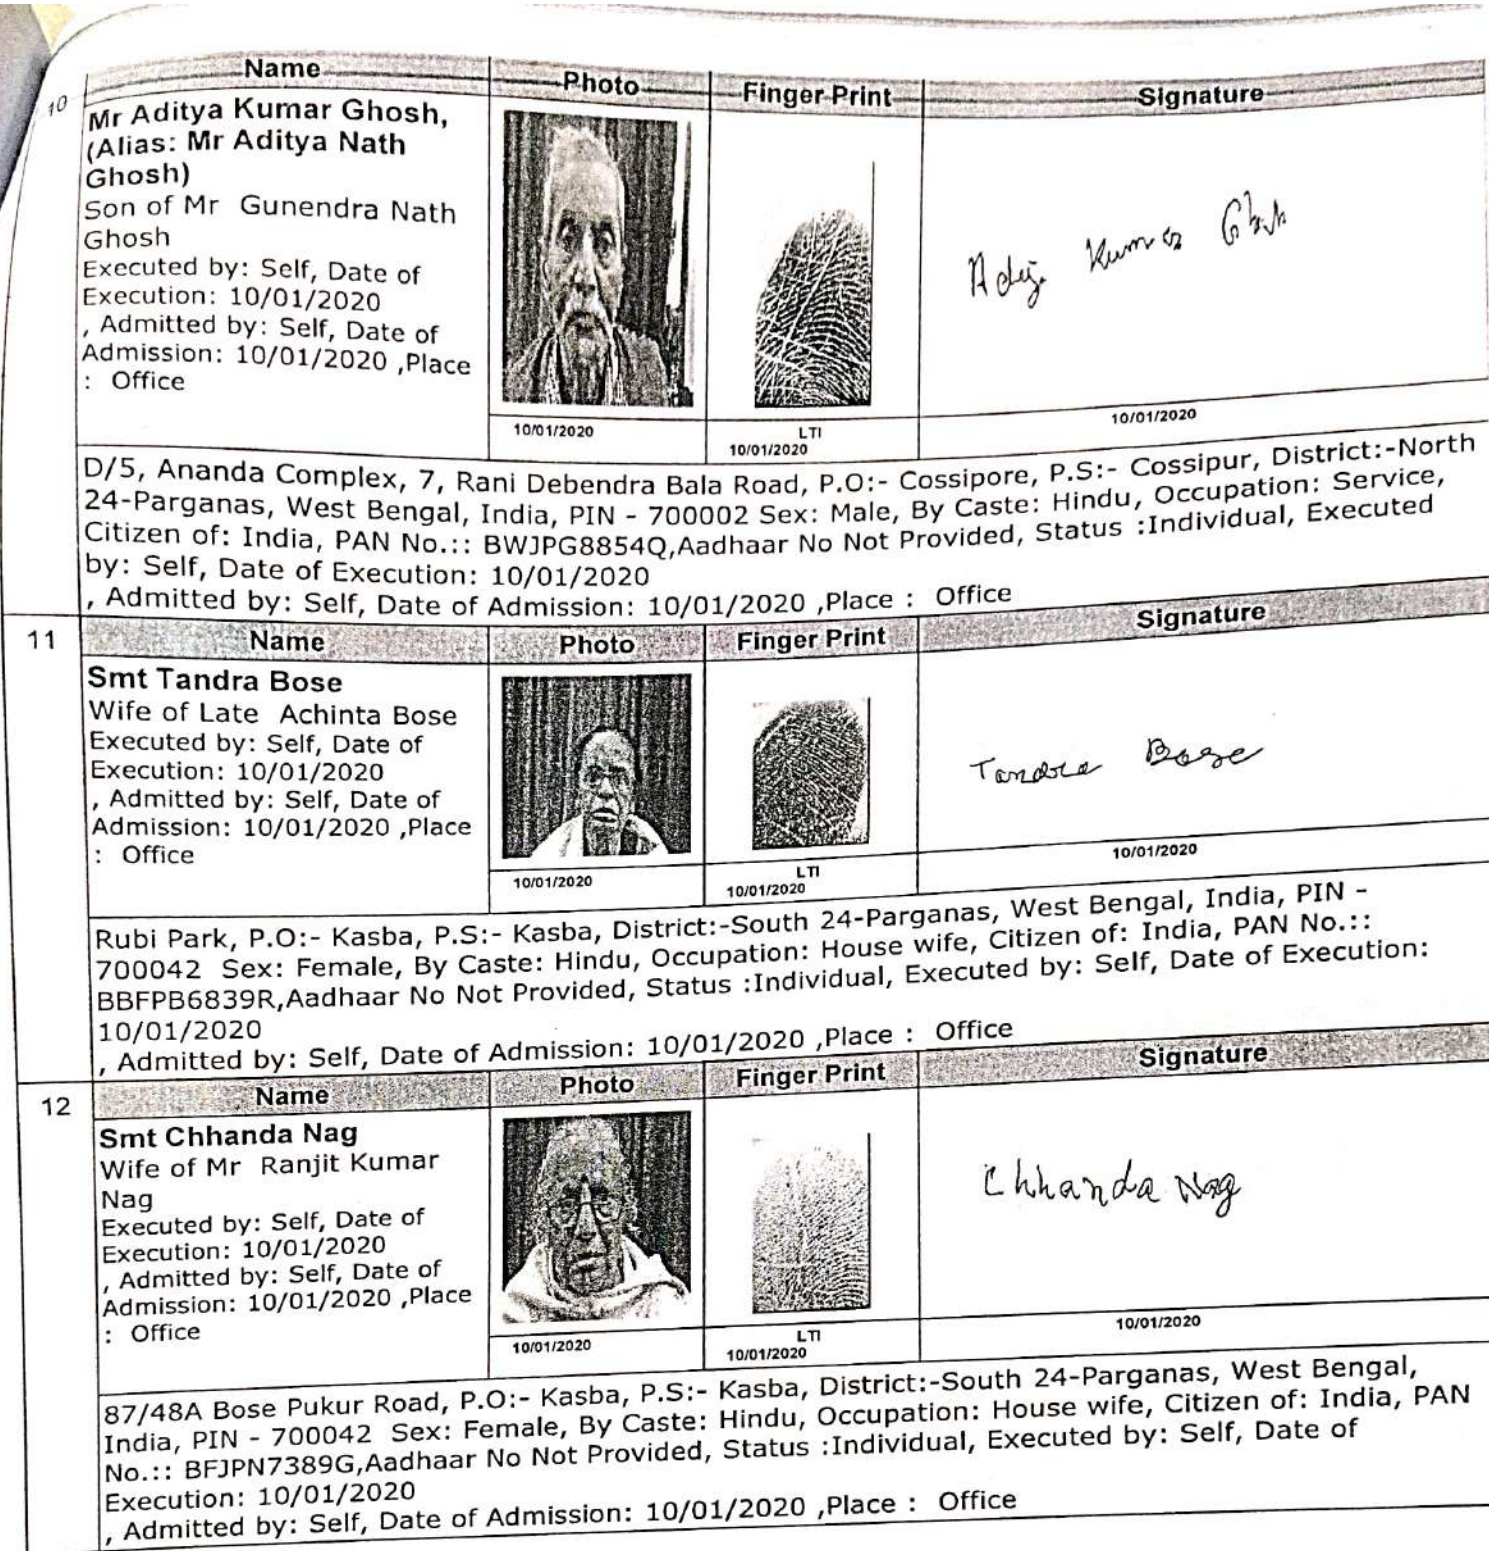 Name Photo Finger Print Signature
10
Mr Aditya Kumar Ghosh,
(Alias: Mr Aditya Nath
Ghosh)
Son of Mr Gunendra Nath
Ghosh
Executed by: Self, Date of
Execution: 10/01/2020
, Admitted by: Self, Date of
Admission: 10/01/2020 ,Place
: Office
Kumar
10/01/2020
LTI
10/01/2020
10/01/2020
D/5, Ananda Complex, 7, Rani Debendra Bala Road, P.O:- Cossipore, P.S:- Cossipur, District:-North
24-Parganas, West Bengal, India, PIN - 700002 Sex: Male, By Caste: Hindu, Occupation: Service,
Citizen of: India, PAN No.:: BWJPG8854Q,Aadhaar No Not Provided, Status :Individual, Executed
by: Self, Date of Execution: 10/01/2020
, Admitted by: Self, Date of Admission: 10/01/2020 ,Place : Office
11
Name Photo Finger Print Signature
Smt Tandra Bose
Wife of Late Achinta Bose
Executed by: Self, Date of
Execution: 10/01/2020
, Admitted by: Self, Date of
Admission: 10/01/2020 ,Place
: Office
Tandra Bose
10/01/2020
LTI
10/01/2020
10/01/2020
Rubi Park, P.O:- Kasba, P.S:- Kasba, District:-South 24-Parganas, West Bengal, India, PIN -
700042 Sex: Female, By Caste: Hindu, Occupation: House wife, Citizen of: India, PAN No.::
BBFPB6839R,Aadhaar No Not Provided, Status :Individual, Executed by: Self, Date of Execution:
10/01/2020
, Admitted by: Self, Date of Admission: 10/01/2020 ,Place : Office
12
Name Photo Finger Print Signature
Smt Chhanda Nag
Wife of Mr Ranjit Kumar
Nag
Executed by: Self, Date of
Execution: 10/01/2020
, Admitted by: Self, Date of
Admission: 10/01/2020 ,Place
: Office
Chhanda Nag
10/01/2020
LTI
10/01/2020
10/01/2020
87/48A Bose Pukur Road, P.O:- Kasba, P.S:- Kasba, District:-South 24-Parganas, West Bengal,
India, PIN - 700042 Sex: Female, By Caste: Hindu, Occupation: House wife, Citizen of: India, PAN
No.:: BFJPN7389G,Aadhaar No Not Provided, Status :Individual, Executed by: Self, Date of
Execution: 10/01/2020
, Admitted by: Self, Date of Admission: 10/01/2020 ,Place : Office